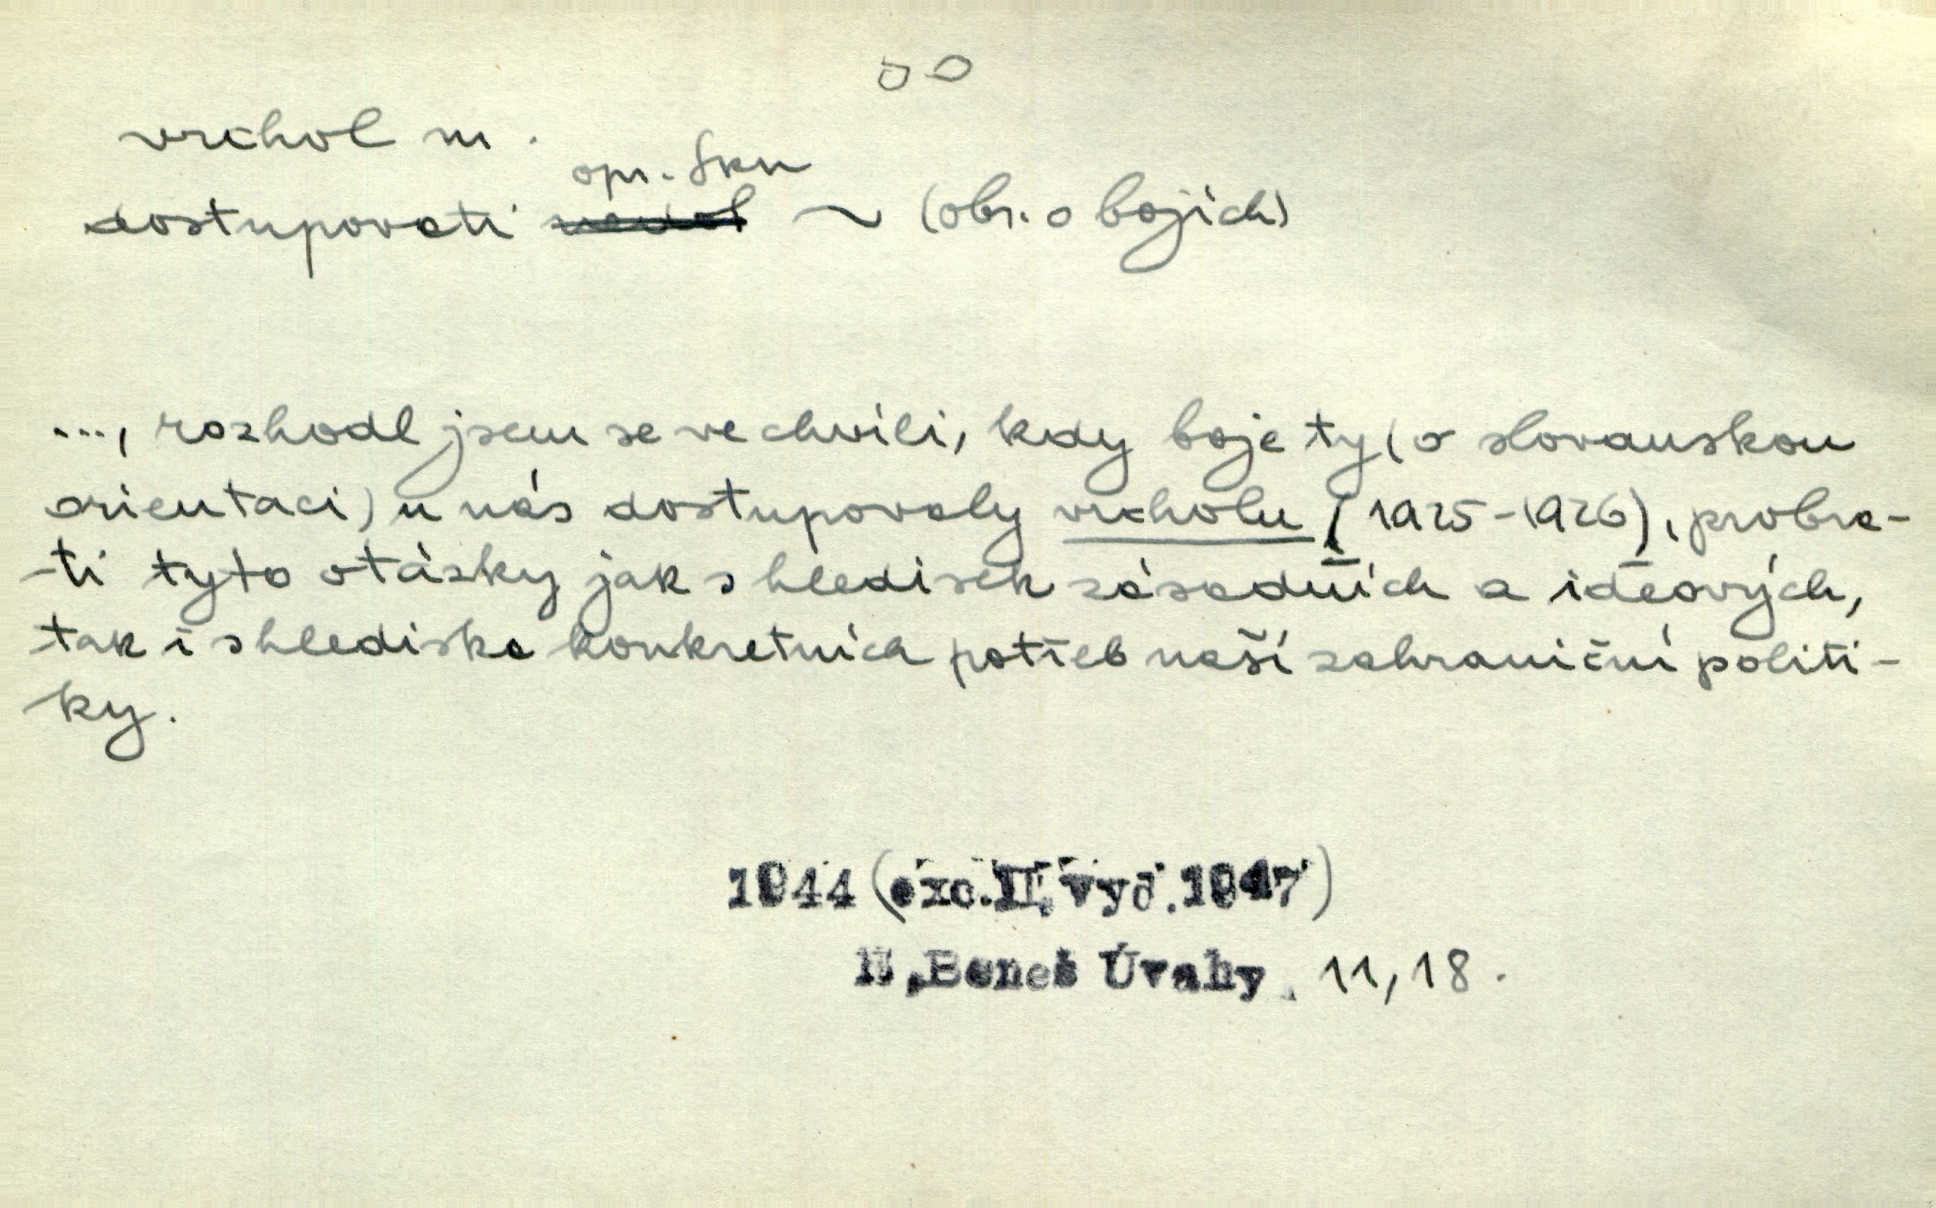 vrchol m.
opr. Skn
dostupovati ~ (obr. o bojích)
..., rozhodl jsem se ve chvíli, kdy boje ty (o slovanskou
orientaci) u nás dostupovaly vrcholu (1925-1926), probra-
-ti tyto otázky jak s hledisek zásadních a ideových,
tak i s hlediska konkretních potřeb naší zahraniční politi-
ky.
1944 (exc. II. vyd. 1947)
E. Beneš Úvahy 11, 18.